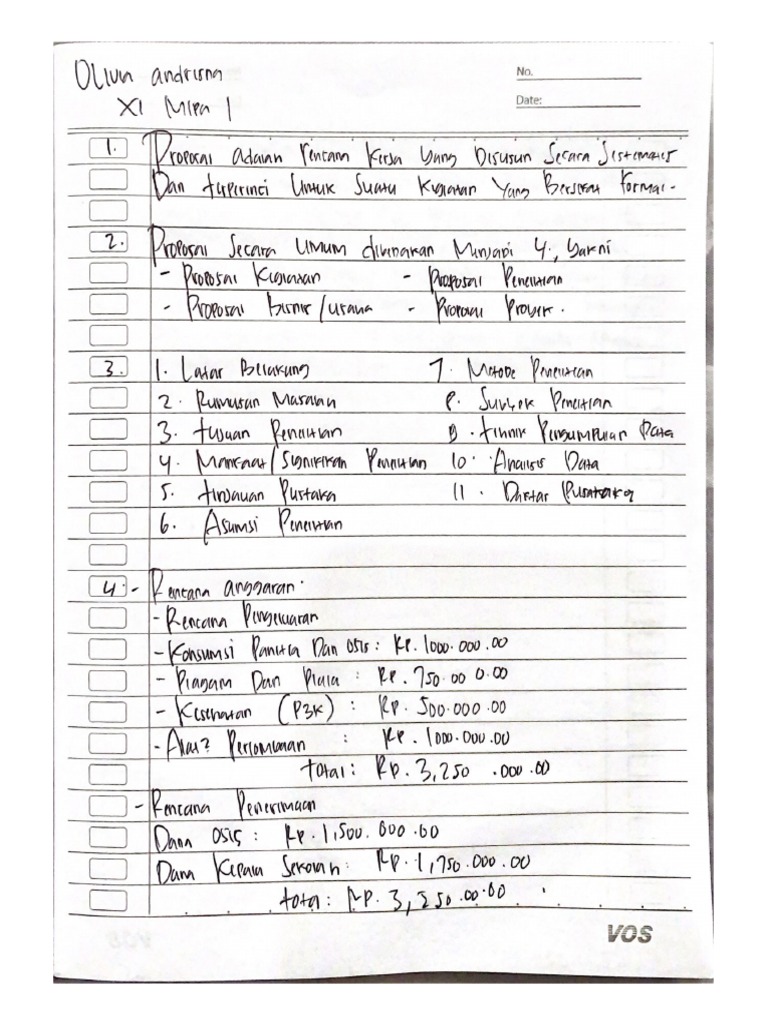 Olivia andrisna
XI Mipa 1
No.
Date:
1. Proposal adalah rencana kerja yang Disusun Secara Sistematis
Dan terperinci Untuk Suatu Kegiatan Yang Bersifat Formal.
2. Proposal Secara Umum dibedakan Menjadi 4, yakni
- Proposal Kegiatan - Proposal Penelitian
- Proposal Bisnis/usaha - Proposal Proyek.
3. 1. Latar Belakang 7. Metode Penelitian
2. Rumusan Masalah 8. Subyek Penelitian
3. tujuan Penelitian 9. tehnik Pengumpulan Data
4. Manfaat/Signifikan Penelitian 10. Analisis Data
5. tinjauan Pustaka 11. Daftar Pustaka
6. Asumsi Penelitian
4. - Rencana anggaran.
- Rencana Pengeluaran
- Konsumsi Panitia Dan OSIS: Rp. 1000.000.00
- Piagam Dan Piala : Rp. 750.000.00
- Kesehatan (P3K) : Rp. 500.000.00
- Alat2 Perlombaan : Rp. 1000.000.00
total: Rp. 3,250 .000.00
- Rencana Penerimaan
Dana OSIS : Rp. 1,500.000.00
Dana Kepala Sekolah: Rp. 1,750.000.00
total: Rp. 3,250.00.00
VOS